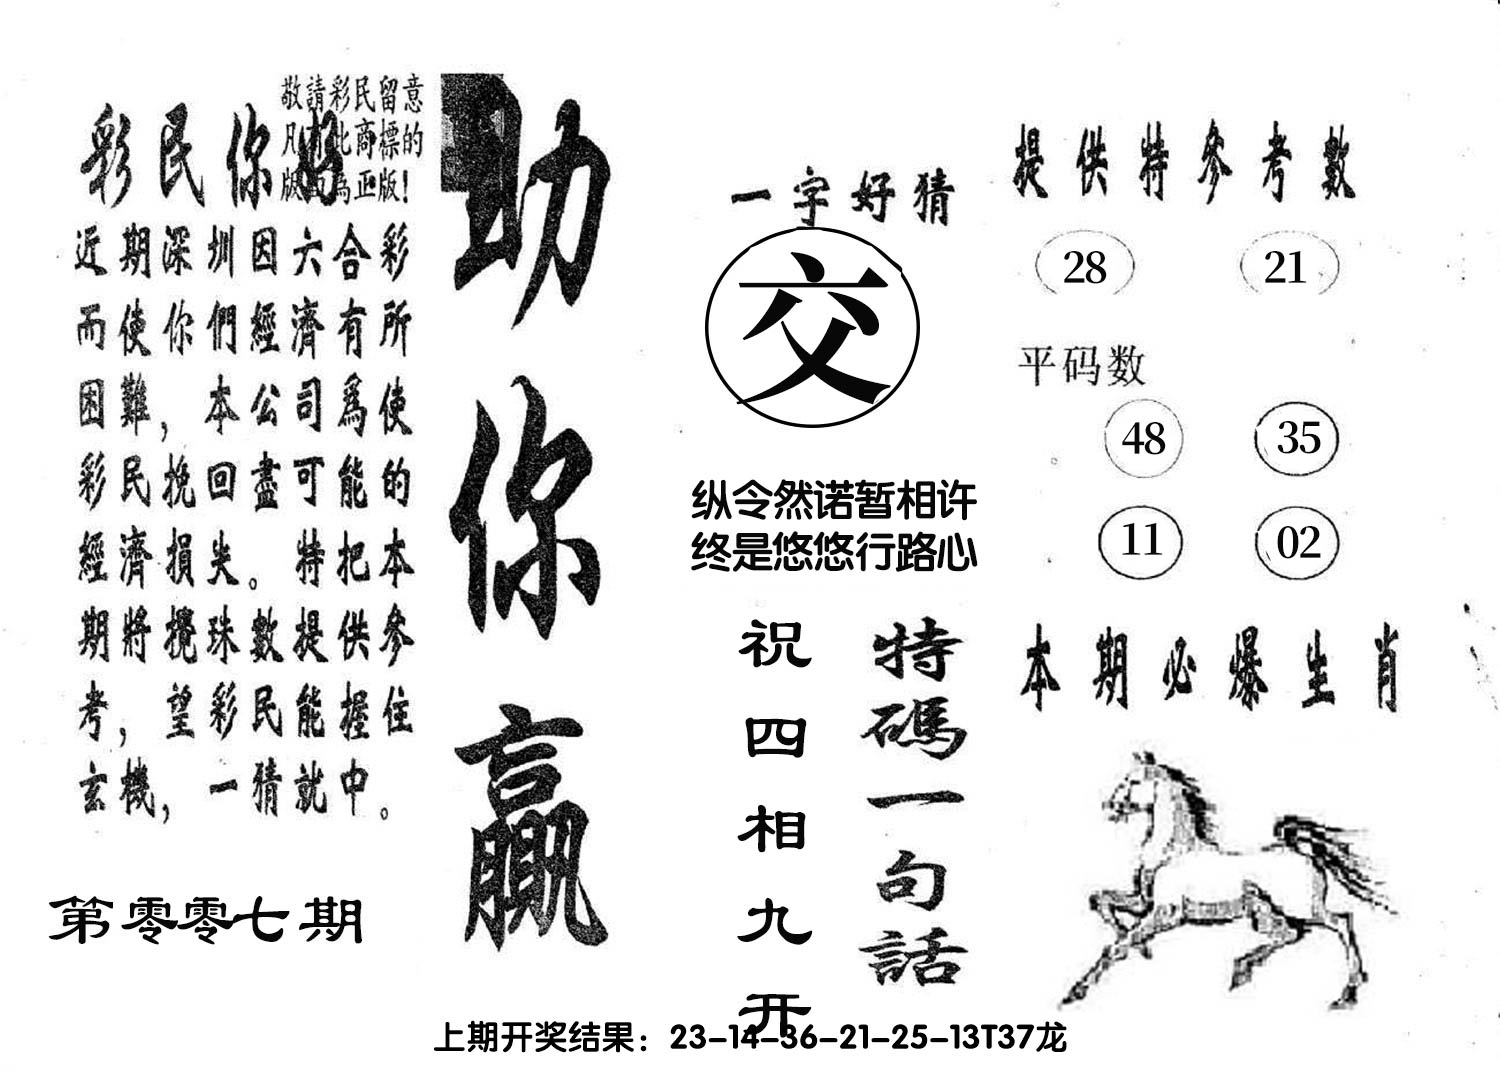 敬請彩民留意
凡有此商標的
版面為正版！
彩民你好
近期深圳因六合彩
而使你們經濟有所
困難，本公司爲使
彩民挽回盡可能的
經濟損失。特把本
期將攪珠數提供參
考，望彩民能握住
玄機，一猜就中。
第零零七期
助你贏
一字好猜
交
纵令然诺暂相许
终是悠悠行路心
特碼一句話
祝四相九开
提供特参考數
28 21
平码数
48 35
11 02
本期必爆生肖
上期开奖结果：23-14-36-21-25-13T37龙